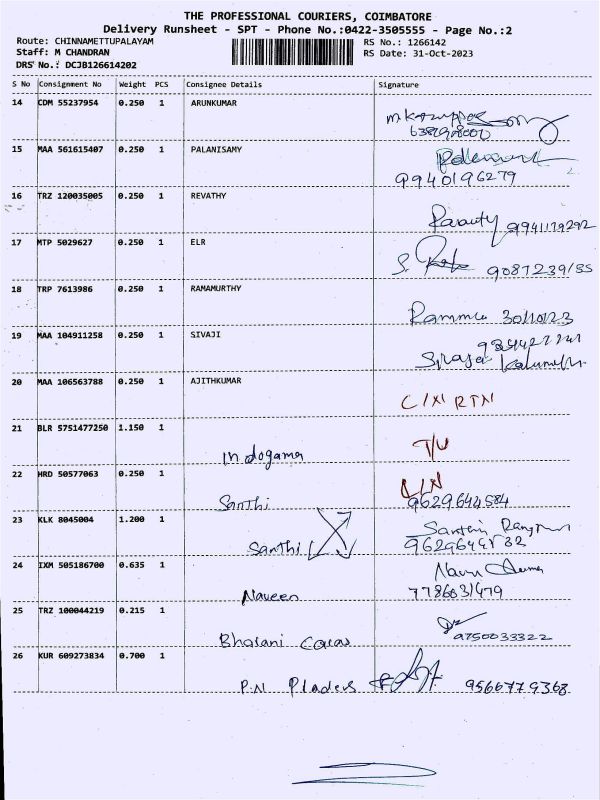 THE PROFESSIONAL COURIERS, COIMBATORE
Delivery Runsheet - SPT - Phone No.:0422-3505555 - Page No.:2
Route: CHINNAMETTUPALAYAM RS No.: 1266142
Staff: M CHANDRAN RS Date: 31-Oct-2023
DRS No.: DCJB126614202
S No Consignment No Weight PCS Consignee Details Signature
14 CDM 55237954 0.250 1 ARUNKUMAR
15 MAA 561615407 0.250 1 PALANISAMY
9940196279
16 TRZ 120035005 0.250 1 REVATHY
9941179292
17 MTP 5029627 0.250 1 ELR
S. 9087239155
18 TRP 7613986 0.250 1 RAMAMURTHY
30/10/23
19 MAA 104911258 0.250 1 SIVAJI
20 MAA 106563788 0.250 1 AJITHKUMAR
C/N RTN
21 BLR 5751477250 1.150 1
Indogama T/U
22 HRD 50577063 0.250 1
Santhi 9629644584
23 KLK 8045004 1.200 1
Santhi
24 IXM 505186700 0.635 1
Naveen 7786031479
25 TRZ 100044219 0.215 1
Bharani Caras 9750033322
26 KUR 609273834 0.700 1
P.N 9566779368